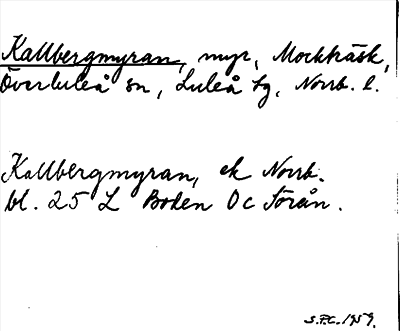 Kallbergmyran, myr, Mockträsk,
Överluleå sn, Luleå tg, Norrb. l.
Kallbergmyran, ek Norrb.
bl. 25 L Boden Oc Torån.
S.F.C. 1959.